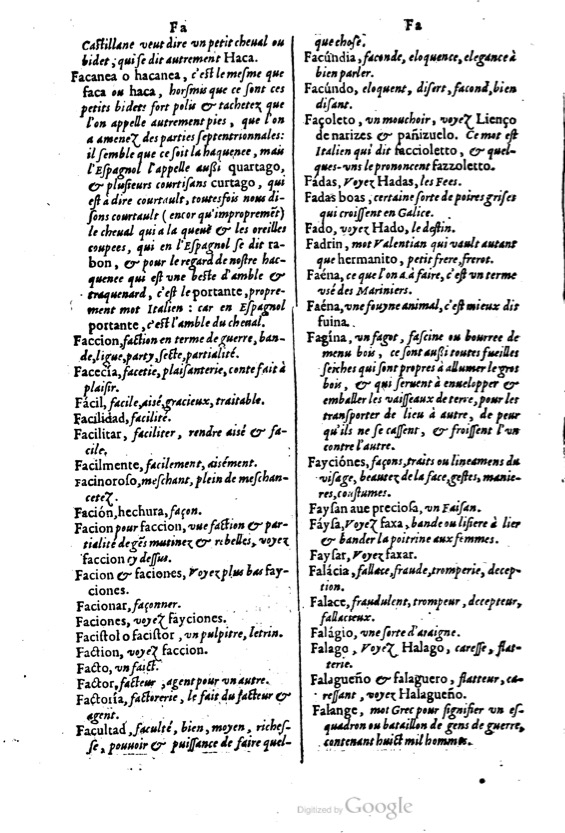 Fa
Castillane veut dire vn petit cheual ou
bidet, qui se dit autrement Haca.
Facanea o hacanea, c'est le mesme que
faca ou haca, horsmis que ce sont ces
petits bidets fort polis & tachetez que
l'on appelle autrement pies, que l'on
a amenez des parties septentrionnales:
il semble que ce soit la haquenee, mais
l'Espagnol l'appelle aussi quartago,
& plusieurs courtisans curtago, qui
est à dire courtault, toutesfois nous di-
sons courtault (encor qu'impropremēt)
le cheual qui a la queuë & les oreilles
coupees, qui en l'Espagnol se dit ra-
bon, & pour le regard de nostre hac-
quenee qui est vne beste d'amble &
traquenard, c'est le portante, propre-
ment mot Italien : car en Espagnol
portante, c'est l'amble du cheual.
Faccion, faction en terme de guerre, ban-
de, ligue, party, secte, partialité.
Facecia, facetie, plaisanterie, conte fait à
plaisir.
Fácil, facile, aisé, gracieux, traitable.
Facilidad, facilité.
Facilitar, faciliter, rendre aisé & fa-
cile.
Facilmente, facilement, aisément.
Facinoroso, meschant, plein de meschan-
cetez.
Fación, hechura, façon.
Facion pour faccion, vne faction & par-
tialité de gēs mutinez & rebelles, voyez
faccion cy dessus.
Facion & faciones, Voyez plus bas fay-
ciones.
Facionar, façonner.
Faciones, voyez fayciones.
Facistol o facistor, vn pulpitre, letrin.
Faction, voyez faccion.
Facto, vn faict.
Factor, facteur, agent pour vn autre.
Factoria, factorerie, le fait du facteur &
agent.
Facultad, faculté, bien, moyen, riches-
se, pouuoir & puissance de faire quel-
Fa
que chose.
Facúndia, faconde, eloquence, elegance à
bien parler.
Facúndo, eloquent, disert, facond, bien
disant.
Façoleto, vn mouchoir, voyez Lienço
de narizes & pañizuelo. Ce mot est
Italien qui dit faccioletto, & quel-
ques-vns le prononcent fazzoletto.
Fádas, Voyez Hadas, les Fees.
Fadas boas, certaine sorte de poires grises
qui croissent en Galice.
Fado, voyez Hado, le destin.
Fadrin, mot Valentian qui vault autant
que hermanito, petit frere, frerot.
Faéna, ce que l'on a à faire, c'est vn terme
vsé des Mariniers.
Faéna, vne fouyne animal, c'est mieux dit
fuina.
Fagina, vn fagot, fascine ou bourree de
menu bois, ce sont aussi toutes fueilles
seiches qui sont propres à allumer le gros
bois, & qui seruent à enuelopper &
emballer les vaisseaux de terre, pour les
transporter de lieu à autre, de peur
qu'ils ne se cassent, & froissent l'vn
contre l'autre.
Fayciónes, façons, traits ou lineamens du
visage, beautez de la face, gestes, manie-
res, coustumes.
Faysan aue preciosa, vn Faisan.
Fáysa, Voyez faxa, bande ou lisiere à lier
& bander la poitrine aux femmes.
Faysar, Voyez faxar.
Falácia, fallace, fraude, tromperie, decep-
tion.
Falace, fraudulent, trompeur, decepteur,
fallacieux.
Falágio, vne sorte d'araigne.
Falago, Voyez Halago, caresse, flat-
terie.
Falagueño & falaguero, flatteur, ca-
ressant, voyez Halagueño.
Falange, mot Grec pour signifier vn es-
quadron ou bataillon de gens de guerre,
contenant huict mil hommes.
Digitized by Google